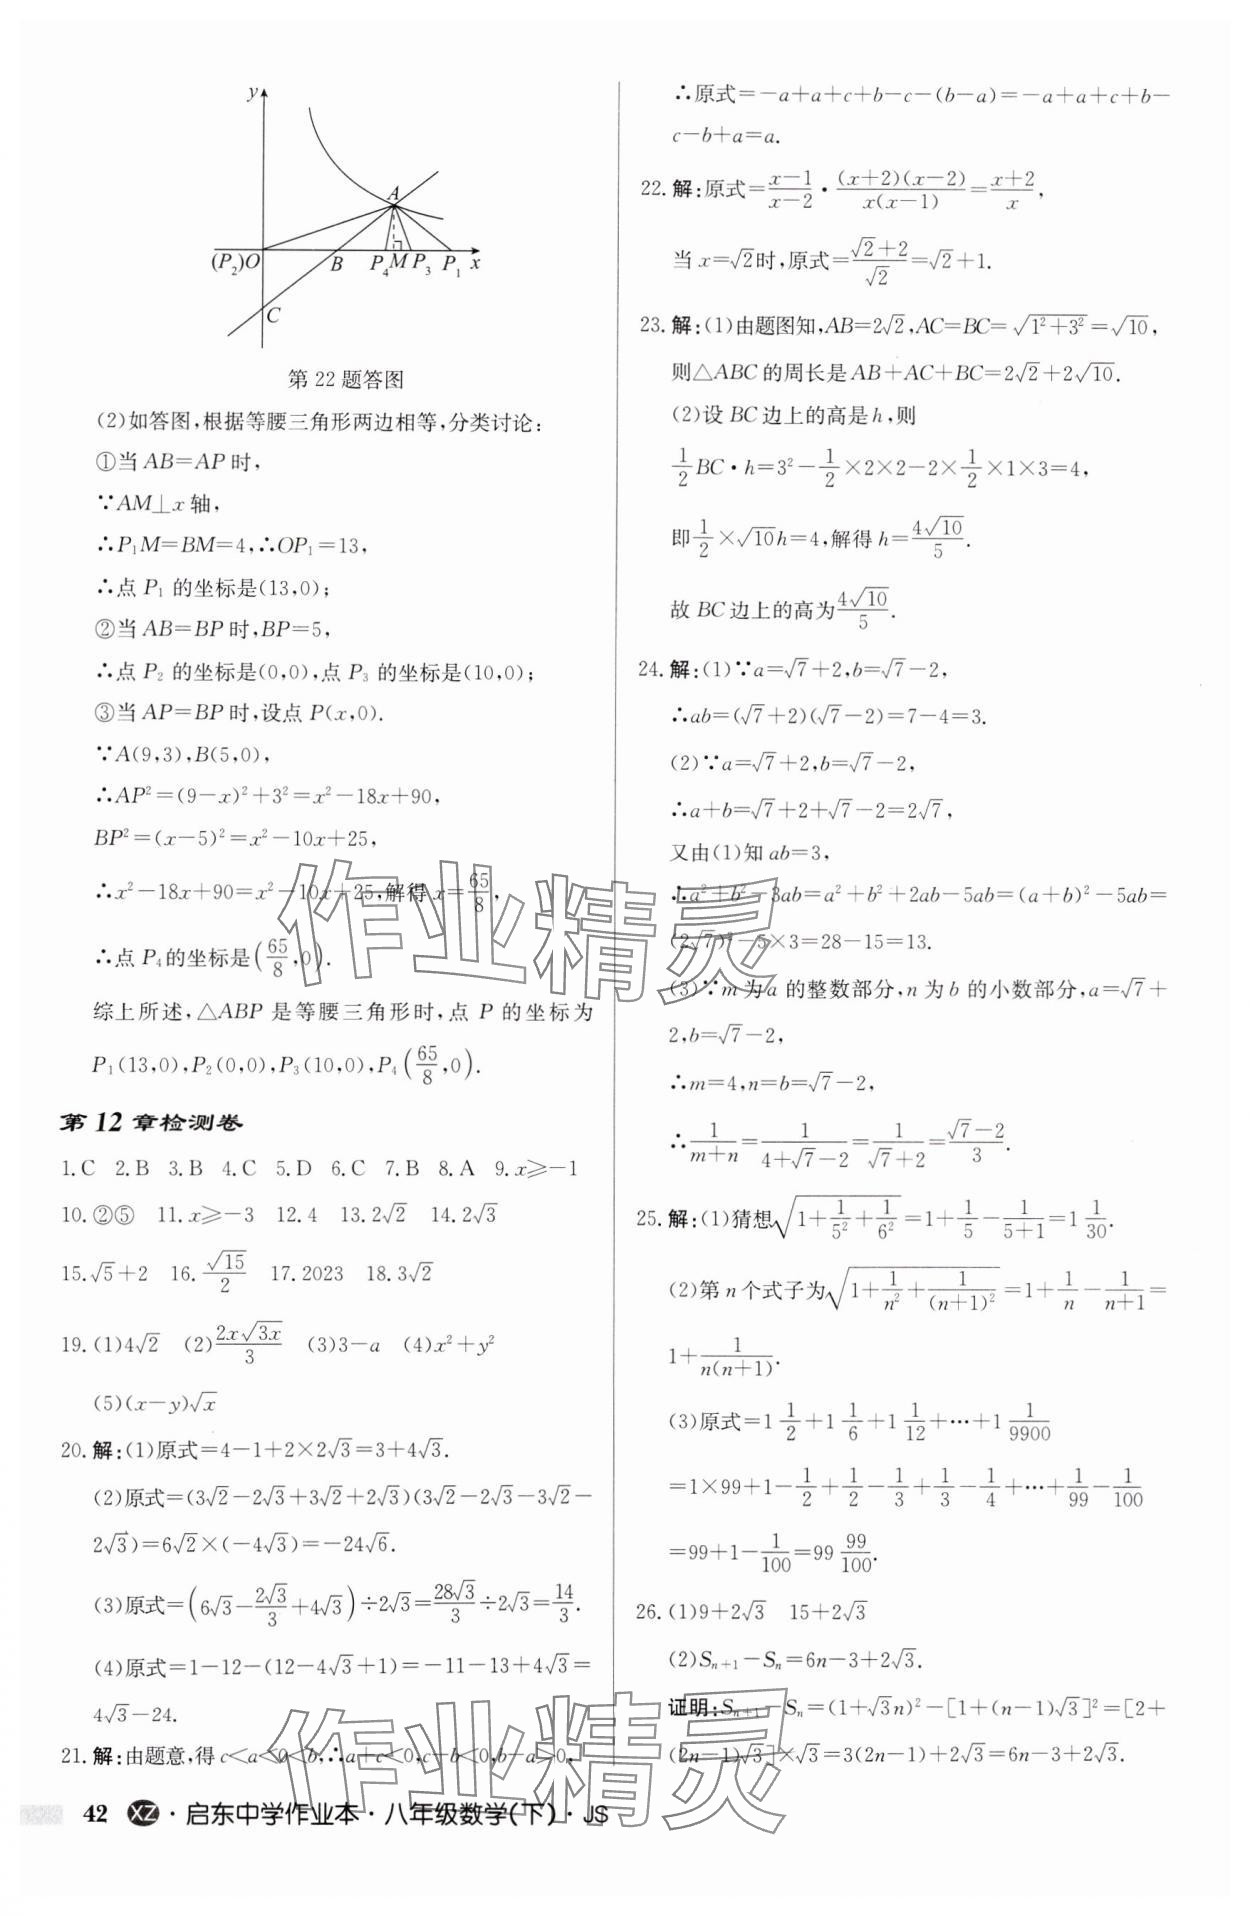 y
A
(P₂)O
B
P₄ M P₃ P₁ x
C
第22题答图
(2)如答图,根据等腰三角形两边相等,分类讨论:
①当AB=AP时,
∵AM⊥x轴,
∴P₁M=BM=4,∴OP₁=13,
∴点P₁的坐标是(13,0);
②当AB=BP时,BP=5,
∴点P₂的坐标是(0,0),点P₃的坐标是(10,0);
③当AP=BP时,设点P(x,0).
∵A(9,3),B(5,0),
∴AP²=(9-x)²+3²=x²-18x+90,
BP²=(x-5)²=x²-10x+25,
∴x²-18x+90=x²-10x+25,解得x=65/8,
∴点P₄的坐标是(65/8,0).
综上所述,△ABP是等腰三角形时,点P的坐标为
P₁(13,0),P₂(0,0),P₃(10,0),P₄(65/8,0).
第12章检测卷
1.C 2.B 3.B 4.C 5.D 6.C 7.B 8.A 9.x≥-1
10.②⑤ 11.x≥-3 12.4 13.2√2 14.2√3
15.√5+2 16.√15/2 17.2023 18.3√2
19.(1)4√2 (2)2x√(3x)/3 (3)3-a (4)x²+y²
(5)(x-y)√x
20.解:(1)原式=4-1+2×2√3=3+4√3.
(2)原式=(3√2-2√3+3√2+2√3)(3√2-2√3-3√2-
2√3)=6√2×(-4√3)=-24√6.
(3)原式=(6√3-2√3/3+4√3)÷2√3=28√3/3÷2√3=14/3.
(4)原式=1-12-(12-4√3+1)=-11-13+4√3=
4√3-24.
21.解:由题意,得c<a<0<b,∴a+c<0,c-b<0,b-a>0,
∴原式=-a+a+c+b-c-(b-a)=-a+a+c+b-
c-b+a=a.
22.解:原式=(x-1)/(x-2)·(x+2)(x-2)/(x(x-1))=(x+2)/x,
当x=√2时,原式=(√2+2)/√2=√2+1.
23.解:(1)由题图知,AB=2√2,AC=BC=√(1²+3²)=√10,
则△ABC的周长是AB+AC+BC=2√2+2√10.
(2)设BC边上的高是h,则
1/2BC·h=3²-1/2×2×2-2×1/2×1×3=4,
即1/2×√10h=4,解得h=4√10/5.
故BC边上的高为4√10/5.
24.解:(1)∵a=√7+2,b=√7-2,
∴ab=(√7+2)(√7-2)=7-4=3.
(2)∵a=√7+2,b=√7-2,
∴a+b=√7+2+√7-2=2√7,
又由(1)知ab=3,
∴a²+b²-3ab=a²+b²+2ab-5ab=(a+b)²-5ab=
(2√7)²-5×3=28-15=13.
(3)∵m为a的整数部分,n为b的小数部分,a=√7+
2,b=√7-2,
∴m=4,n=b=√7-2,
∴1/(m+n)=1/(4+√7-2)=1/(√7+2)=(√7-2)/3.
25.解:(1)猜想√(1+1/5²+1/6²)=1+1/5-1/(5+1)=1 1/30.
(2)第n个式子为√(1+1/n²+1/(n+1)²)=1+1/n-1/(n+1)=
1+1/(n(n+1)).
(3)原式=1 1/2+1 1/6+1 1/12+…+1 1/9900
=1×99+1-1/2+1/2-1/3+1/3-1/4+…+1/99-1/100
=99+1-1/100=99 99/100.
26.(1)9+2√3 15+2√3
(2)Sₙ₊₁-Sₙ=6n-3+2√3.
证明:Sₙ₊₁-Sₙ=(1+√3n)²-[1+(n-1)√3]²=[2+
(2n-1)√3]×√3=3(2n-1)+2√3=6n-3+2√3.
作业精灵
作业精灵
42 XZ·启东中学作业本·八年级数学(下)·JS